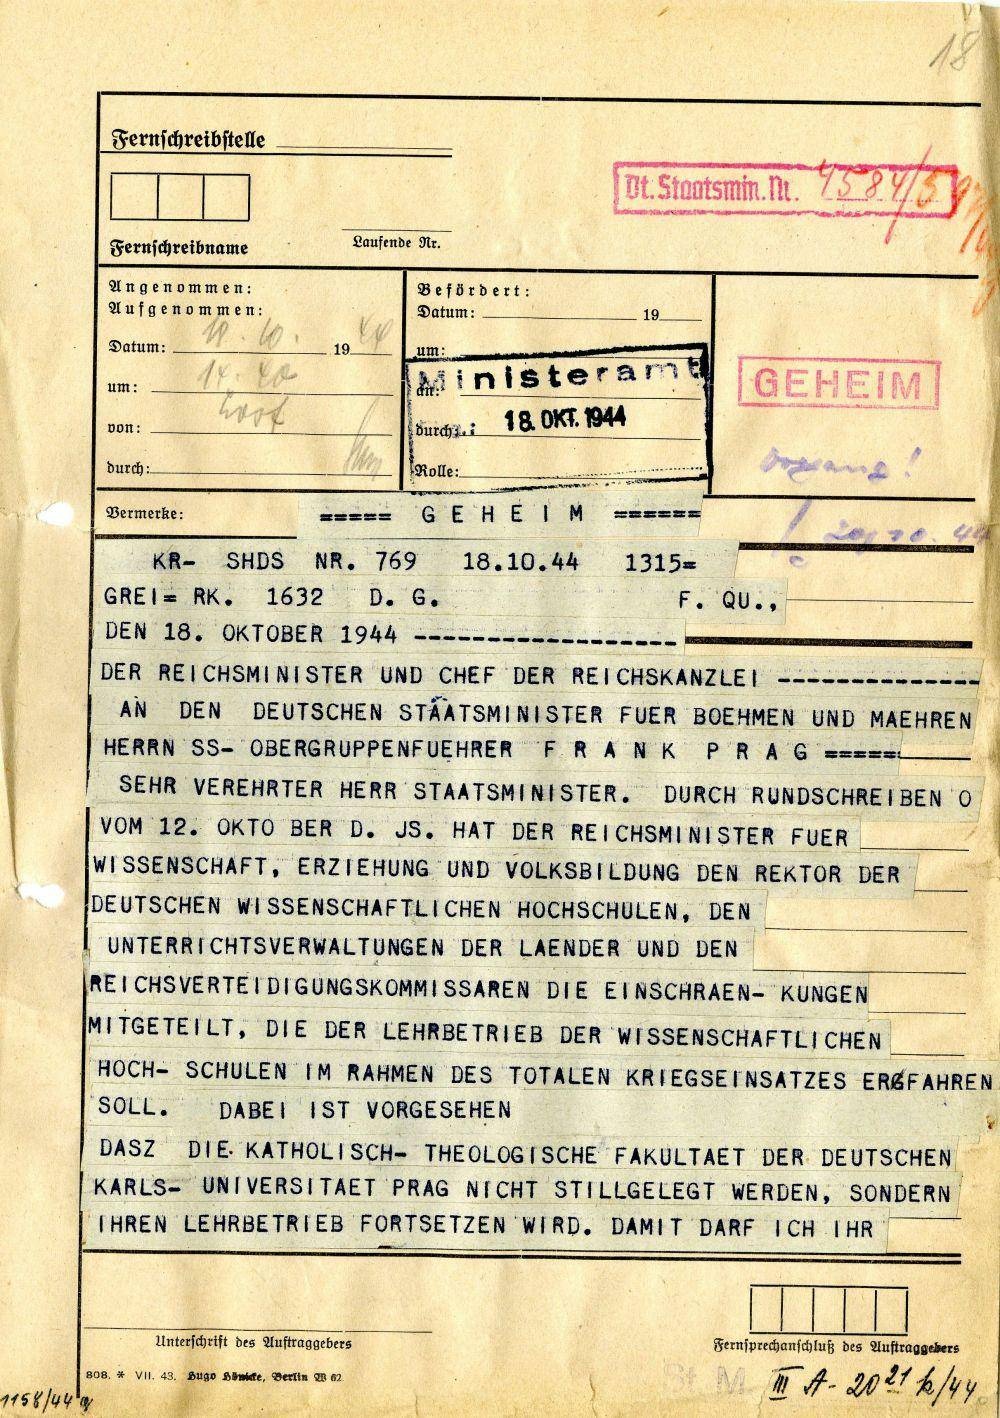 18
Fernschreibstelle
Dt. Staatsmin. Nr. 4584/5
Fernschreibname
Laufende Nr.
Angenommen:
Aufgenommen:
Datum: 18. 10. 19 44
um: 14.40
von:
durch:
Befördert:
Datum: 19
um:
an:
durch:
Rolle:
Ministeramt
18. OKT. 1944
GEHEIM
Vermerke:
===== G E H E I M ======
KR- SHDS NR. 769 18.10.44 1315=
GREI= RK. 1632 D. G. F. QU.,
DEN 18. OKTOBER 1944 ------------------
DER REICHSMINISTER UND CHEF DER REICHSKANZLEI --------------
AN DEN DEUTSCHEN STAATSMINISTER FUER BOEHMEN UND MAEHREN
HERRN SS- OBERGRUPPENFUEHRER F R A N K P R A G =====
SEHR VEREHRTER HERR STAATSMINISTER. DURCH RUNDSCHREIBEN O
VOM 12. OKTO BER D. JS. HAT DER REICHSMINISTER FUER
WISSENSCHAFT, ERZIEHUNG UND VOLKSBILDUNG DEN REKTOR DER
DEUTSCHEN WISSENSCHAFTLICHEN HOCHSCHULEN, DEN
UNTERRICHTSVERWALTUNGEN DER LAENDER UND DEN
REICHSVERTEIDIGUNGSKOMMISSAREN DIE EINSCHRAEN- KUNGEN
MITGETEILT, DIE DER LEHRBETRIEB DER WISSENSCHAFTLICHEN
HOCH- SCHULEN IM RAHMEN DES TOTALEN KRIEGSEINSATZES ERGFAHREN
SOLL. DABEI IST VORGESEHEN
DASZ DIE KATHOLISCH- THEOLOGISCHE FAKULTAET DER DEUTSCHEN
KARLS- UNIVERSITAET PRAG NICHT STILLGELEGT WERDEN, SONDERN
IHREN LEHRBETRIEB FORTSETZEN WIRD. DAMIT DARF ICH IHR
Unterschrift des Auftraggebers
Fernsprechanschluß des Auftraggebers
808. * VII. 43. Hugo Hönicke, Berlin W 62
St. M III A - 20 21 k/44
1158/44 g